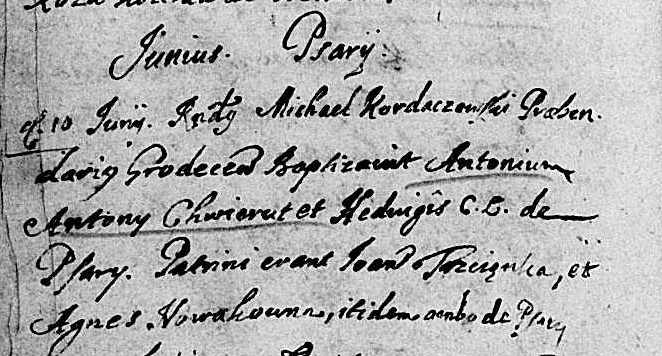 Junius. Psarÿ.
10 Junÿ. Rndg Michael Kordaczewski Præben
darig Grodecen Baptizavit Antonium
Antony Chwierut et Hedwigis C. L. de
Psary. Patrini erant Joan Trzcionka, et
Agnes Nowakowna, itidem ambo de Psary